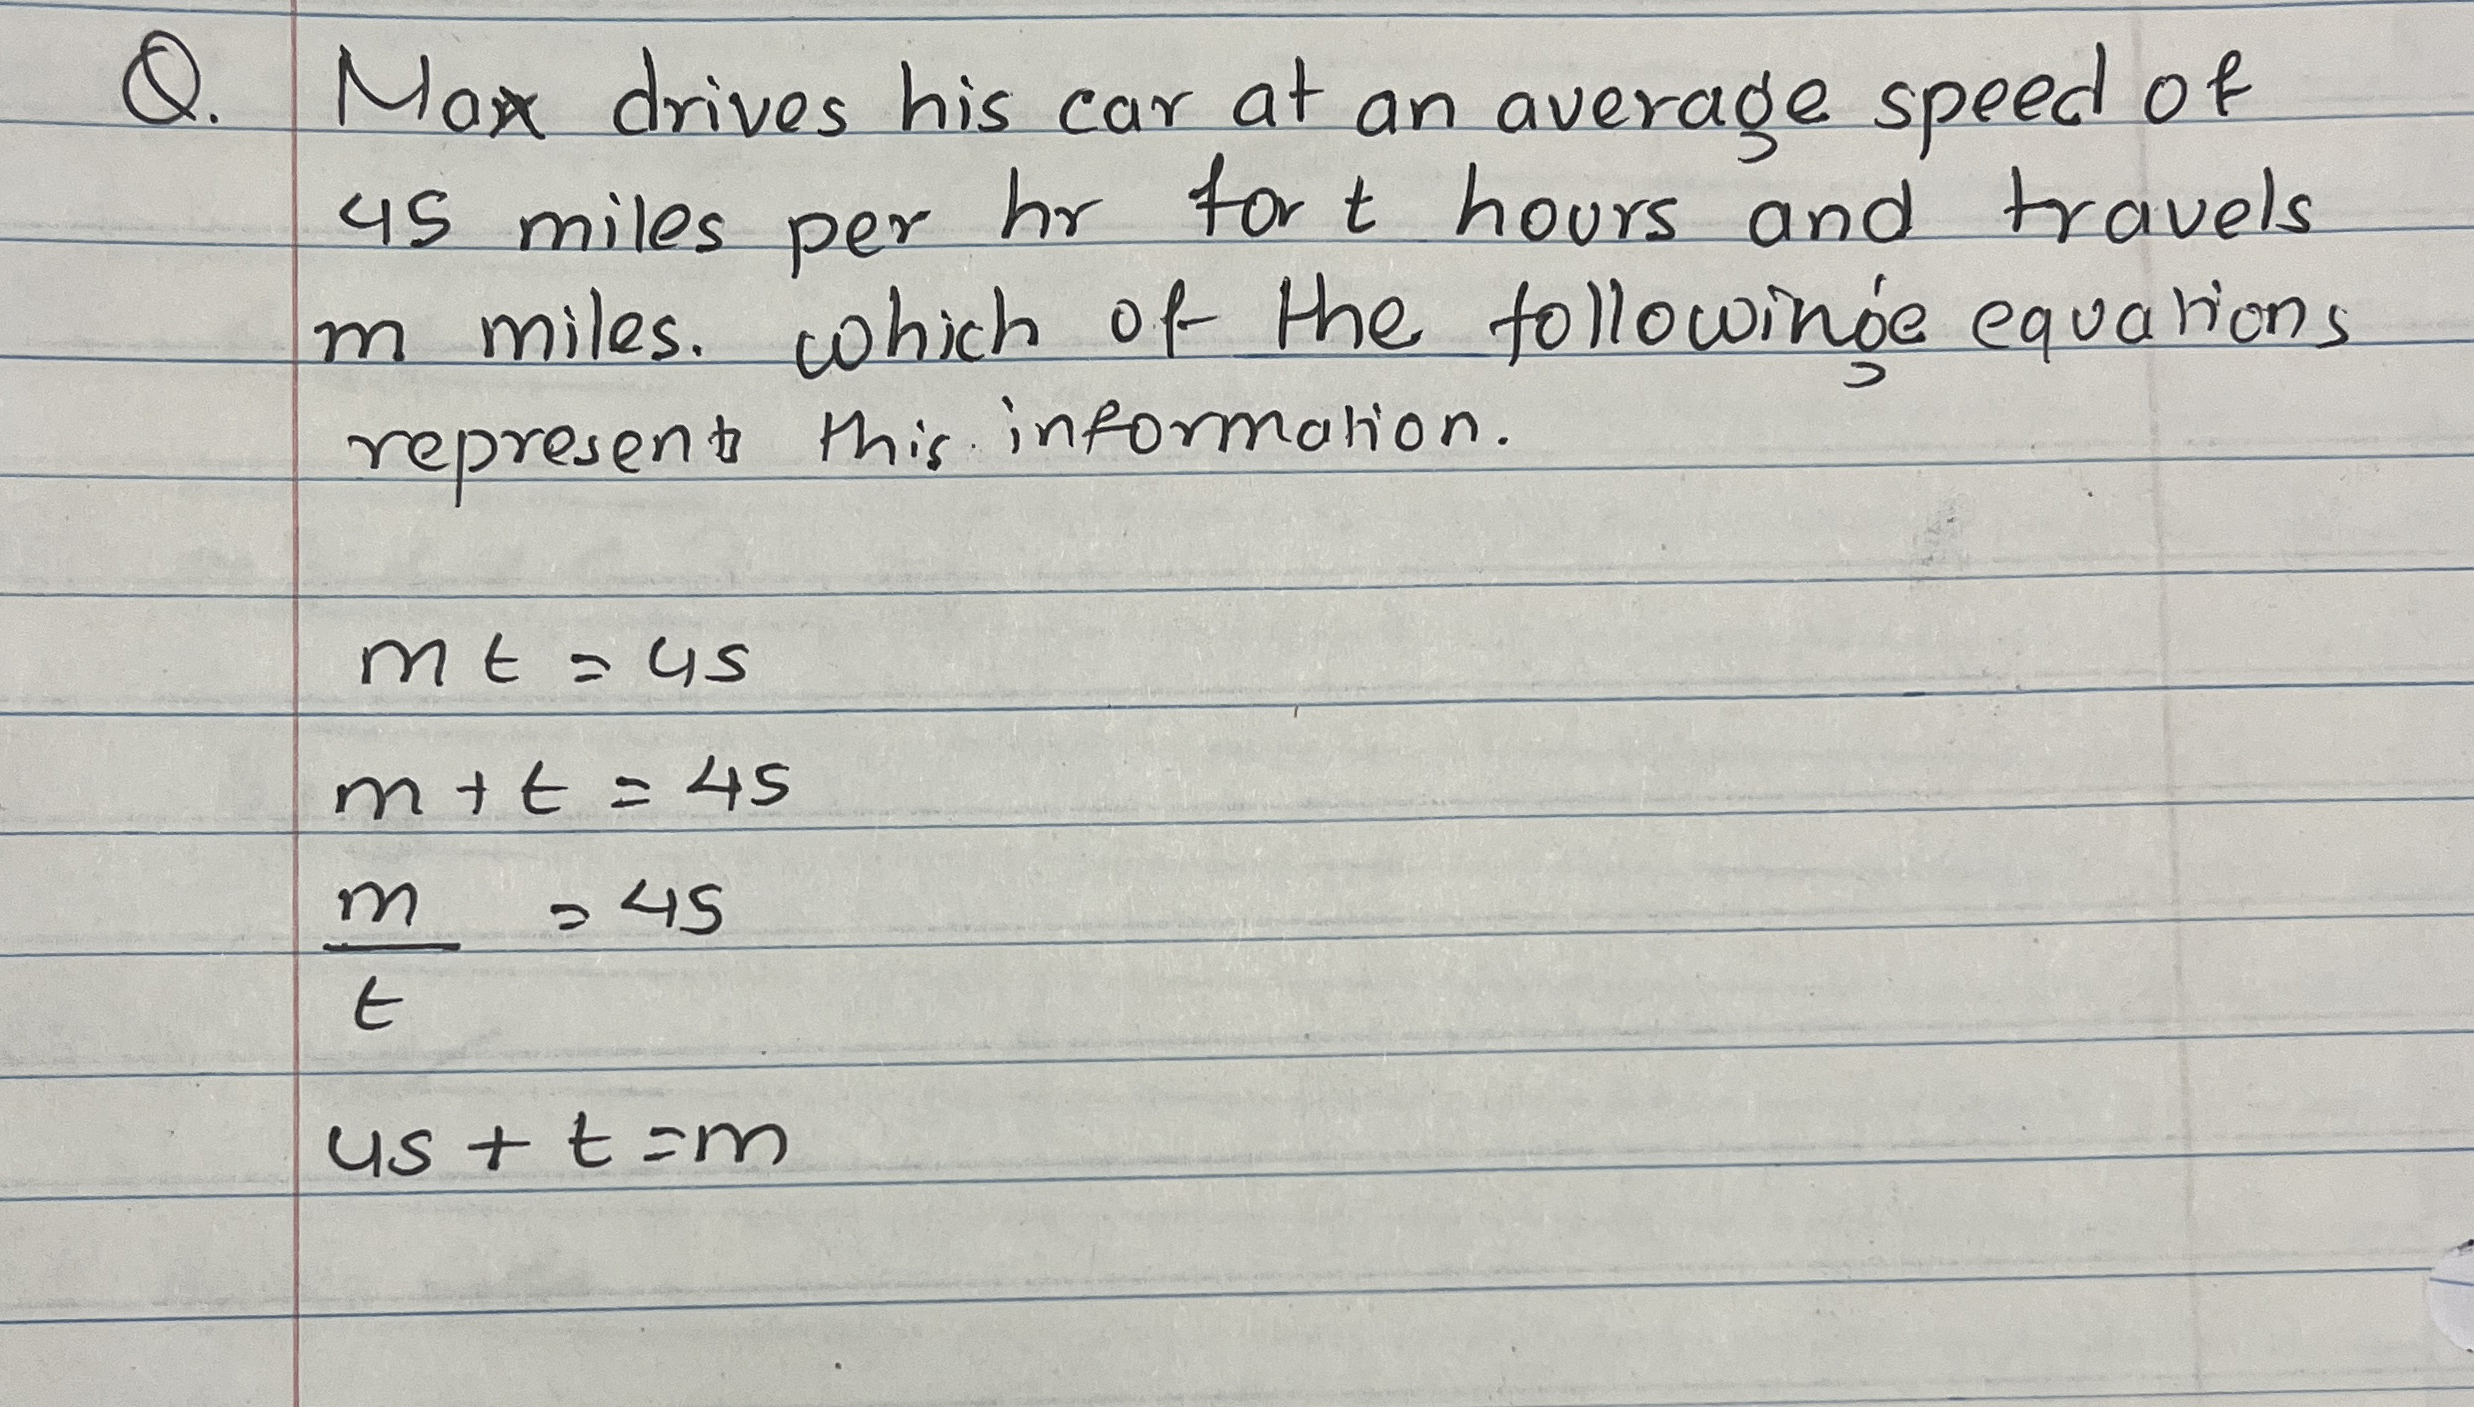 Q. Max drives his car at an average speed of
45 miles per hr for t hours and travels
m miles. which of the following equations
represents this information.
mt = 45
m + t = 45
m = 45
t
45 + t = m